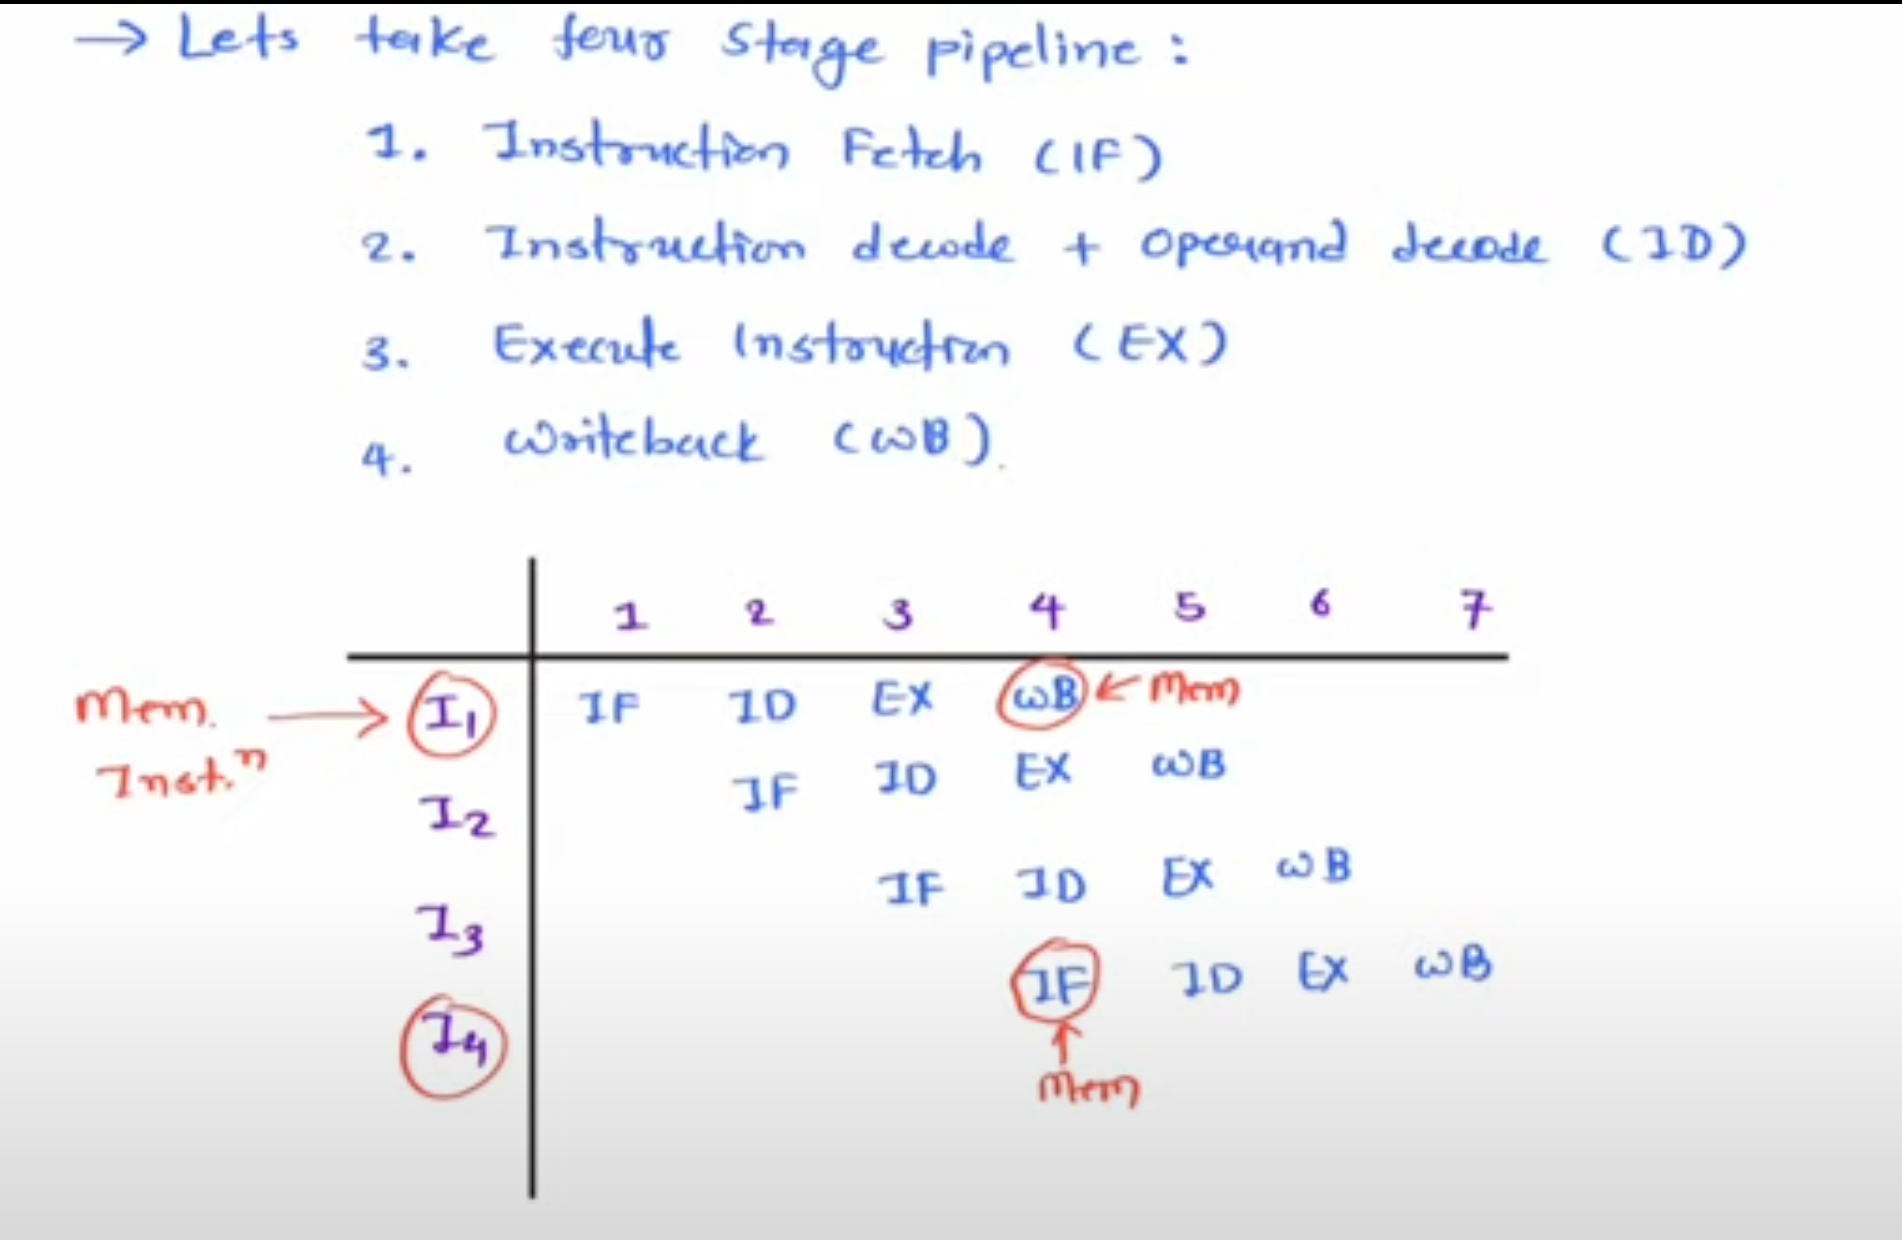 → Lets take four stage pipeline :
1. Instruction Fetch (IF)
2. Instruction decode + operand decode (ID)
3. Execute Instruction (EX)
4. Writeback (WB).
1 2 3 4 5 6 7
Mem. Inst.n → I1 IF ID EX WB ← Mem
I2 IF ID EX WB
I3 IF ID EX WB
I4 IF ID EX WB
↑
Mem